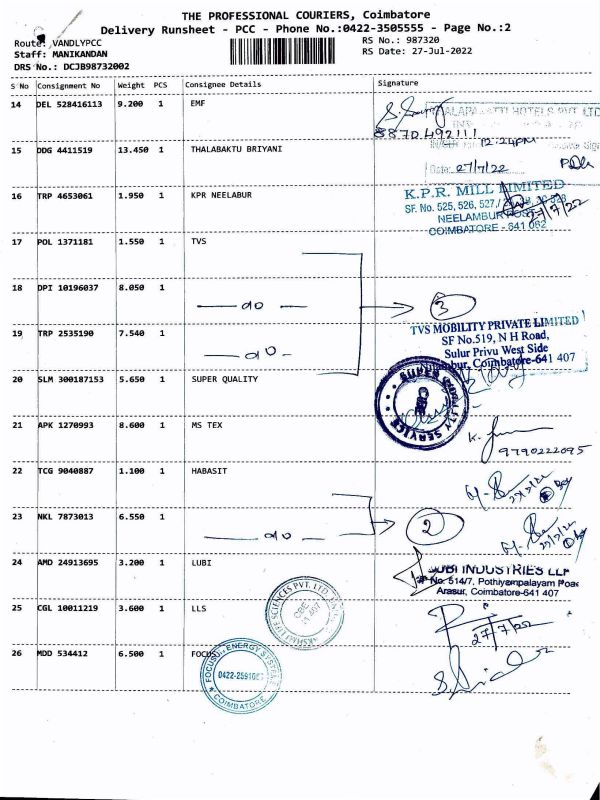 THE PROFESSIONAL COURIERS, Coimbatore
Delivery Runsheet - PCC - Phone No.:0422-3505555 - Page No.:2
Route: VANDLYPCC
RS No.: 987320
Staff: MANIKANDAN
RS Date: 27-Jul-2022
DRS No.: DCJB98732002
S No Consignment No Weight PCS Consignee Details Signature
14 DEL 528416113 9.200 1 EMF
HOTELS PVT. LTD
8870492111
12:24PM
15 DDG 4411519 13.450 1 THALABAKTU BRIYANI
Date: 27/7/22
16 TRP 4653061 1.950 1 KPR NEELABUR
K.P.R. MILL LIMITED
SF. No. 525, 526, 527,
NEELAMBUR POST
27/7/22
COIMBATORE - 641 062
17 POL 1371181 1.550 1 TVS
18 DPI 10196037 8.050 1
do
3
19 TRP 2535190 7.540 1
do
TVS MOBILITY PRIVATE LIMITED
SF No.519, N H Road,
Sulur Privu West Side
Coimbatore-641 407
20 SLM 300187153 5.650 1 SUPER QUALITY
SUPER QUALITY SERVICE
CBE
21 APK 1270993 8.600 1 MS TEX
9790222095
22 TCG 9040887 1.100 1 HABASIT
23 NKL 7873013 6.550 1
do
2
24 AMD 24913695 3.200 1 LUBI
LUBI INDUSTRIES LLP
No. 514/7, Pothiyampalayam Road
Arasur, Coimbatore-641 407
25 CGL 10011219 3.600 1 LLS
LIFE SCIENCES PVT. LTD.
CBE
27/7/22
26 MDD 534412 6.500 1 FOCUS
FOCUS ENERGY SYSTEM
COIMBATORE